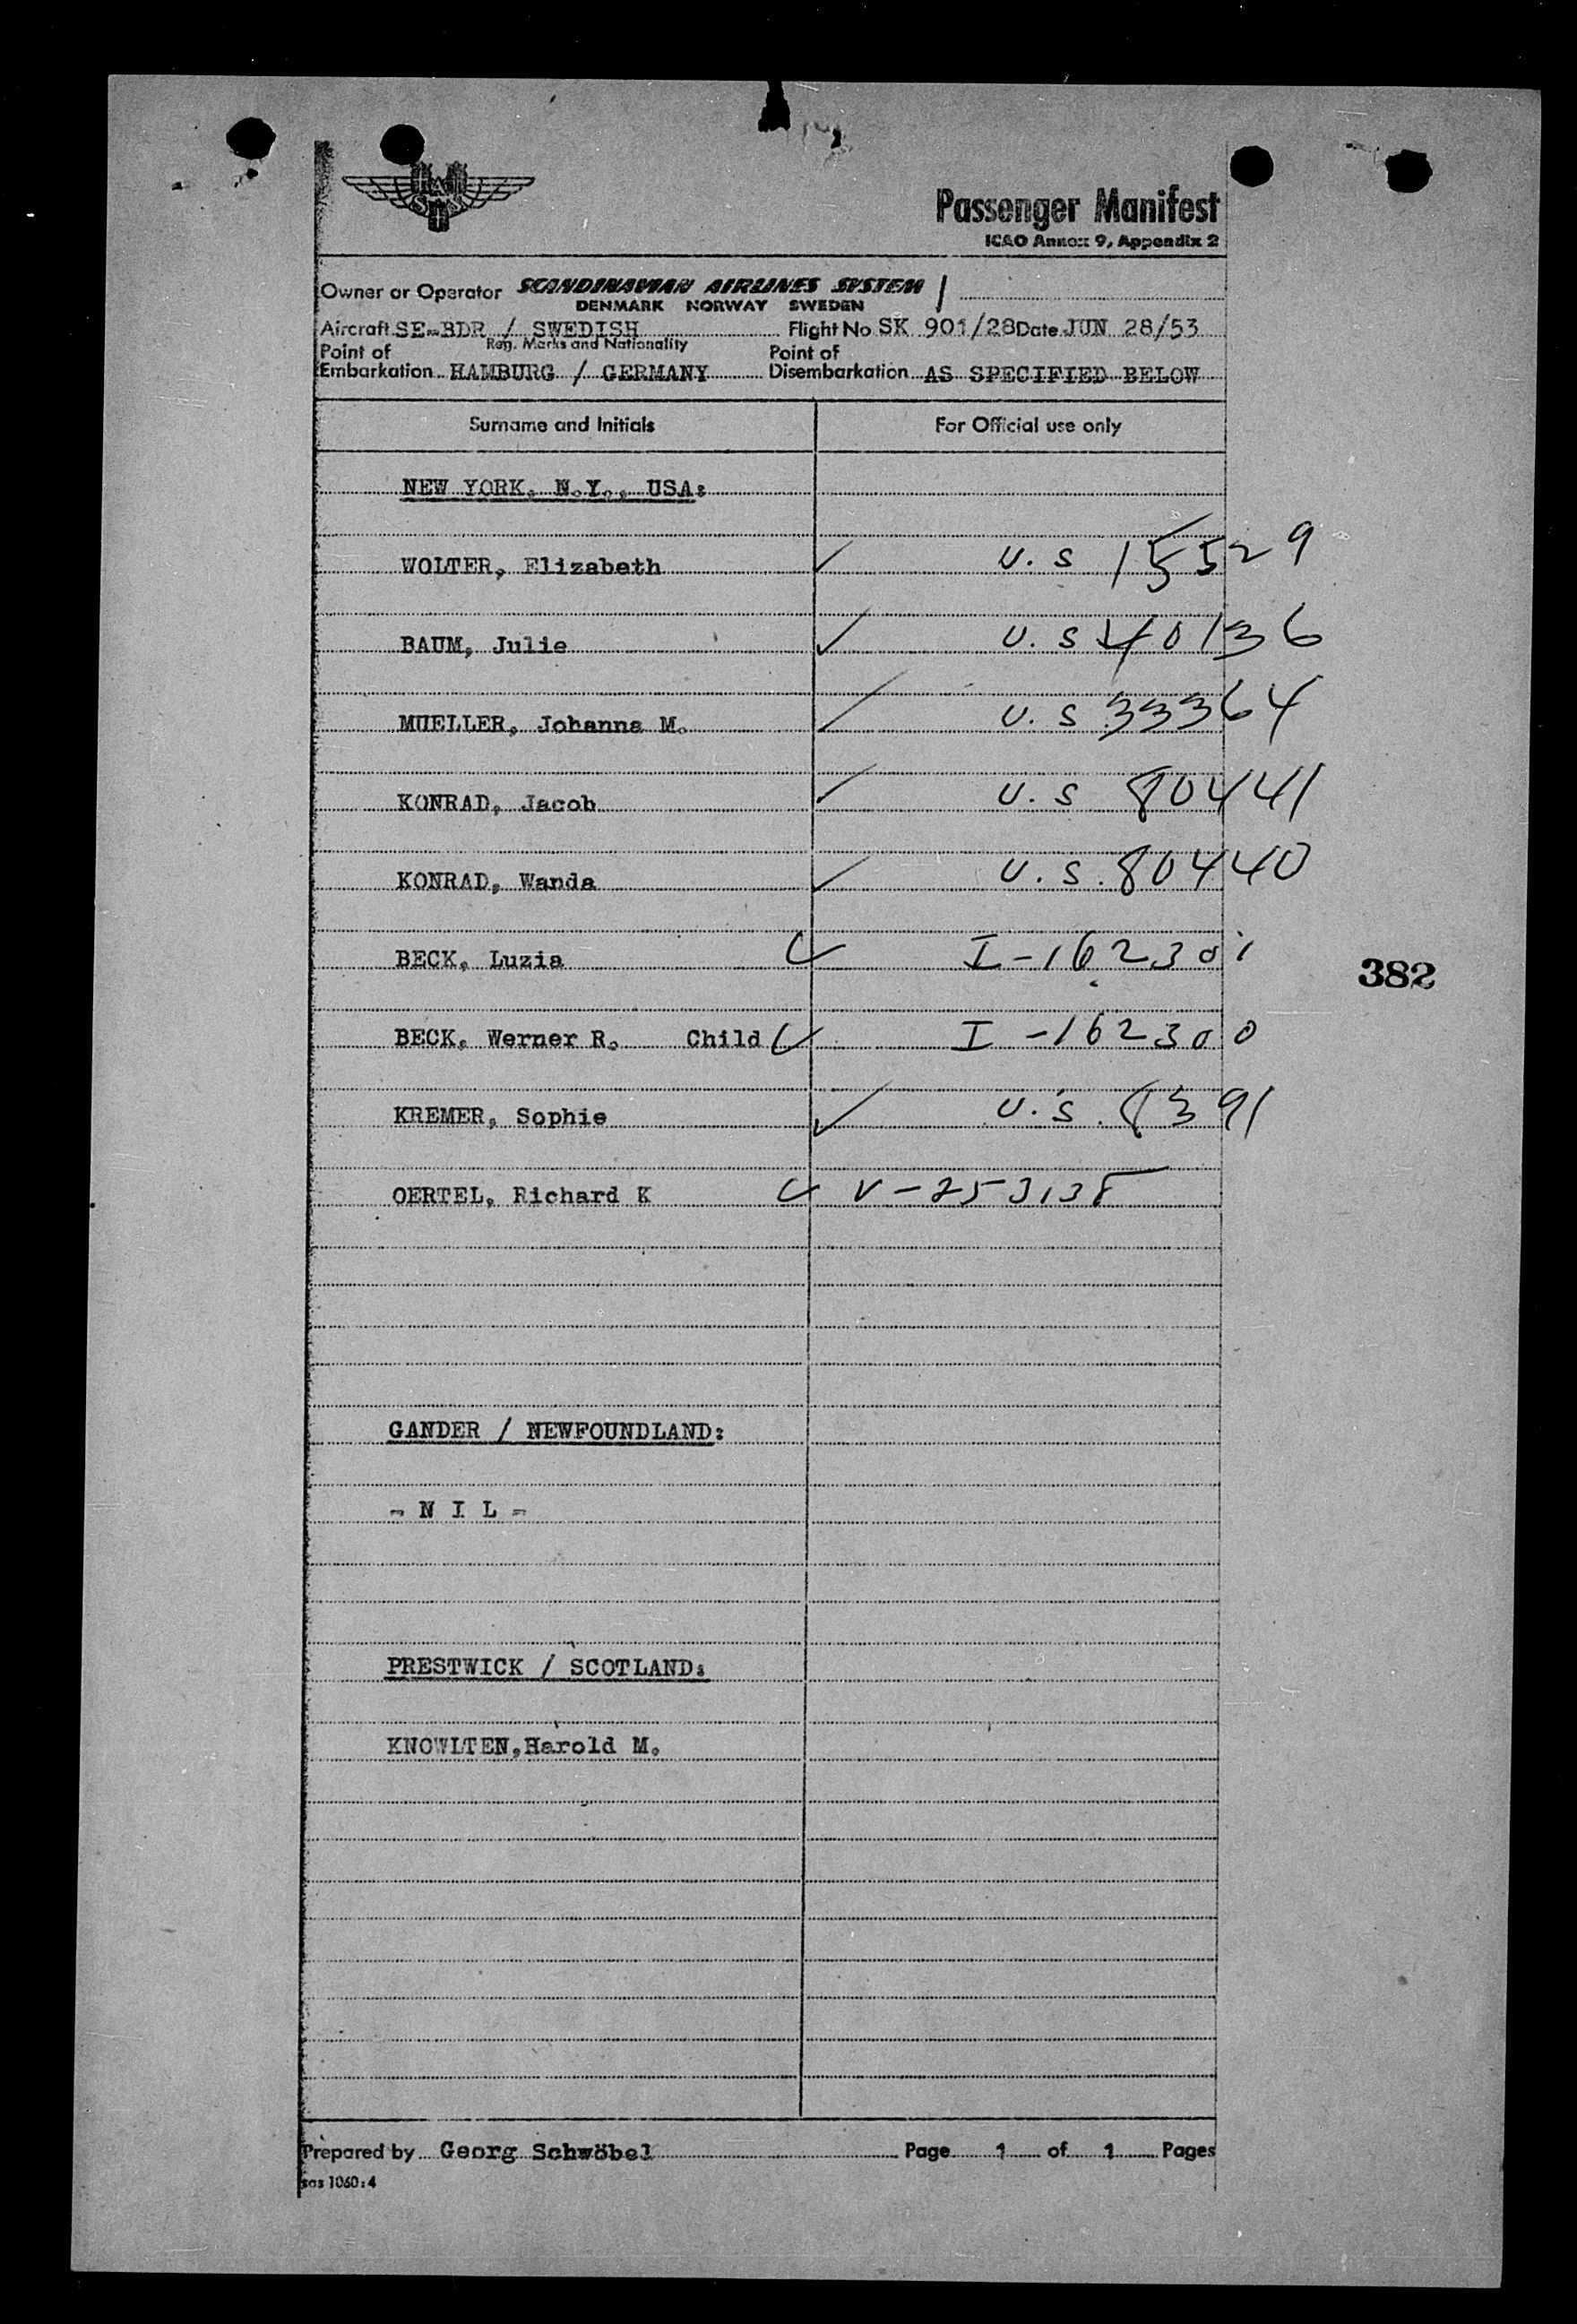 SAS
Passenger Manifest
ICAO Annex 9, Appendix 2
Owner or Operator SCANDINAVIAN AIRLINES SYSTEM
DENMARK NORWAY SWEDEN
Aircraft SE-BDR / SWEDISH Flight No SK 901/28 Date JUN 28/53
Reg. Marks and Nationality
Point of Embarkation HAMBURG / GERMANY Point of Disembarkation AS SPECIFIED BELOW
Surname and Initials For Official use only
NEW YORK, N.Y., USA:
WOLTER, Elizabeth ✓ U.S 15529
BAUM, Julie ✓ U.S 40136
MUELLER, Johanna M. ✓ U.S 33364
KONRAD, Jacob ✓ U.S 80441
KONRAD, Wanda ✓ U.S. 80440
BECK, Luzia ✓ I-162301
382
BECK, Werner R. Child ✓ I-162300
KREMER, Sophie ✓ U.S.
OERTEL, Richard K ✓ V-253138
GANDER / NEWFOUNDLAND:
- N I L -
PRESTWICK / SCOTLAND:
KNOWLTEN,Harold M.
Prepared by Georg Schwöbel Page 1 of 1 Pages
sas 1060:4